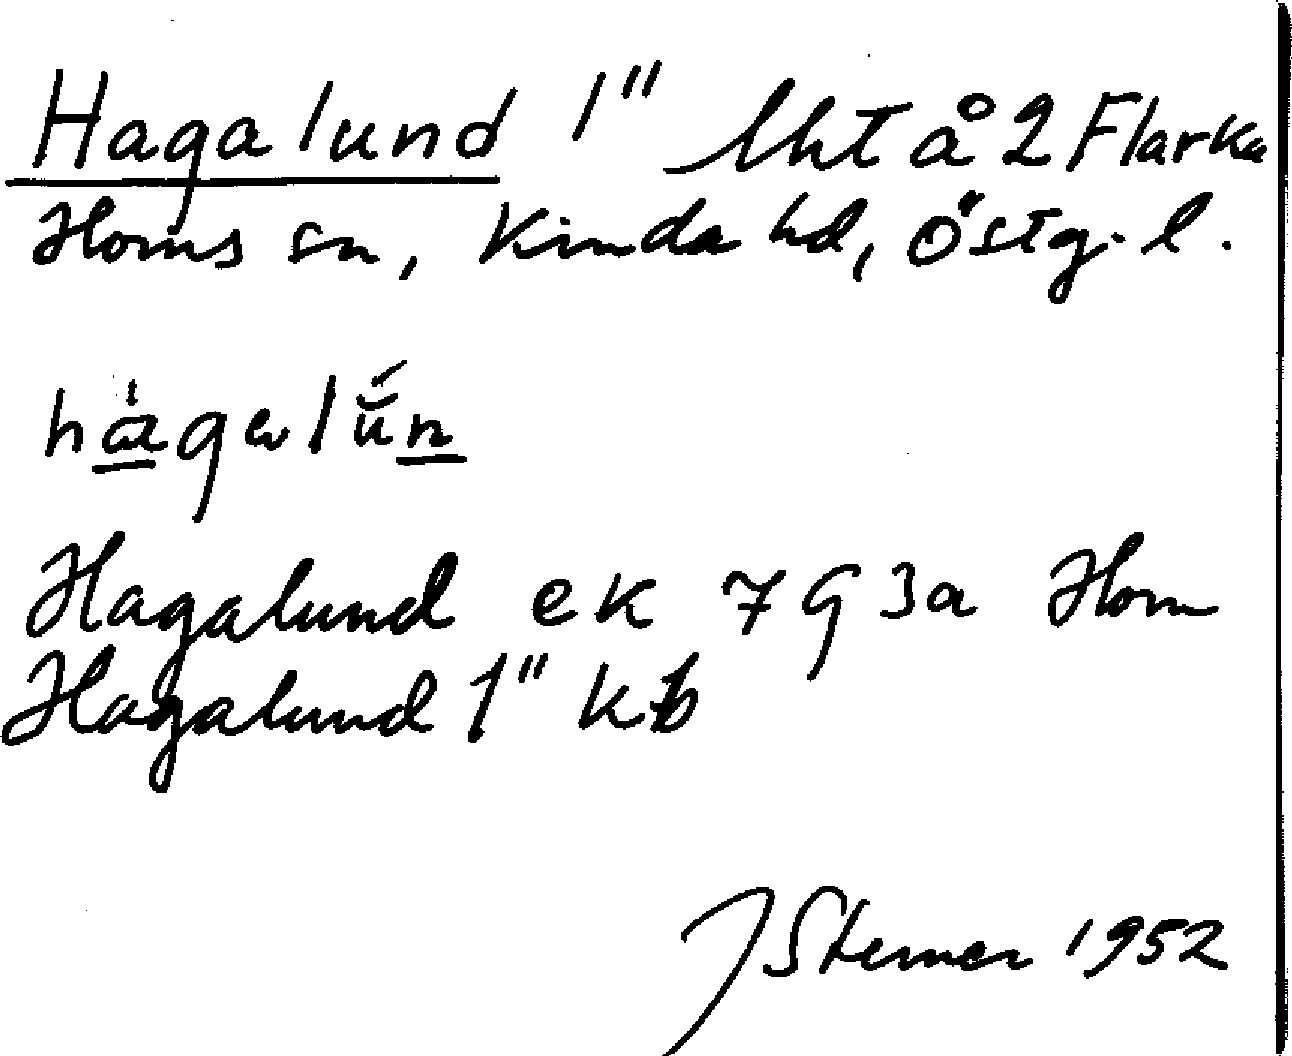 Hagalund 1" lht å 2 Flarka
Horns sn, Kinda hd, Östg. l.
hagalun
Hagalund ek 7 G 3a Horn
Hagalund 1" kb
J Sterner 1952